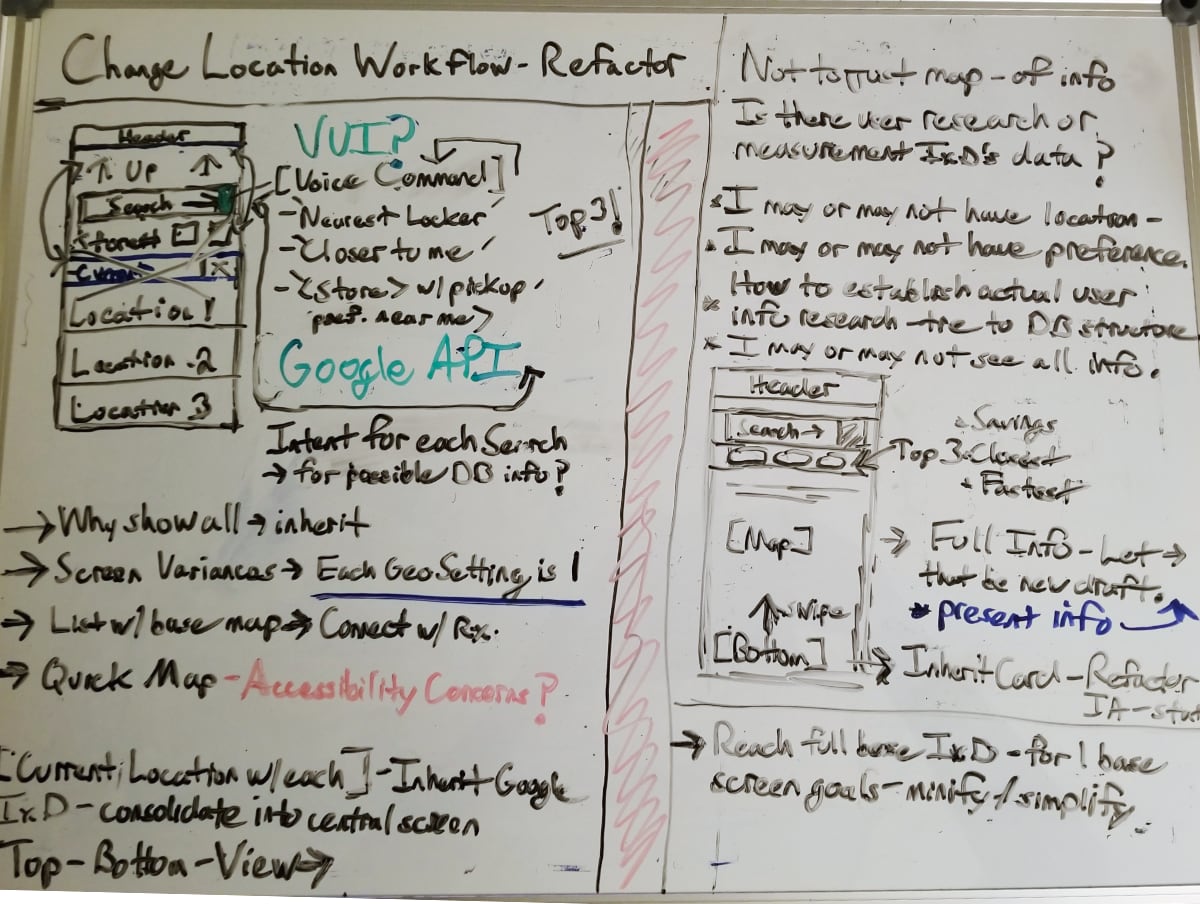 Change Location Workflow - Refactor
Header
↑ Up ↑
Search →
Location 1
Location 2
Location 3
VUI?
[Voice Command]
- 'Nearest Locker'
- 'Closer to me'
- '<Store> w/ pickup'
pref. near me>
Top 3!
Google API
Intent for each Search
→ for possible DB info?
→ Why show all → inherit
→ Screen Variances → Each GeoSetting is 1
→ List w/ base map → Connect w/ Rx.
→ Quick Map - Accessibility Concerns?
[Current Location w/ each] - Inherit Google
IxD - consolidate into central screen
Top - Bottom - View →
Not to map - of info
Is there user research or
measurement IxD's data?
* I may or may not have location -
* I may or may not have preference.
How to establish actual user
* info research - tie to DB structure
* I may or may not see all info.
Header
Search →
Savings
Top 3 Closest
Fastest
[Map]
↑ Swipe
[Bottom]
→ Full Info - Let →
that be new draft.
present info
→ Inherit Card - Refactor
IA -
→ Reach full base IxD - for 1 base
screen goals - minify / simplify.